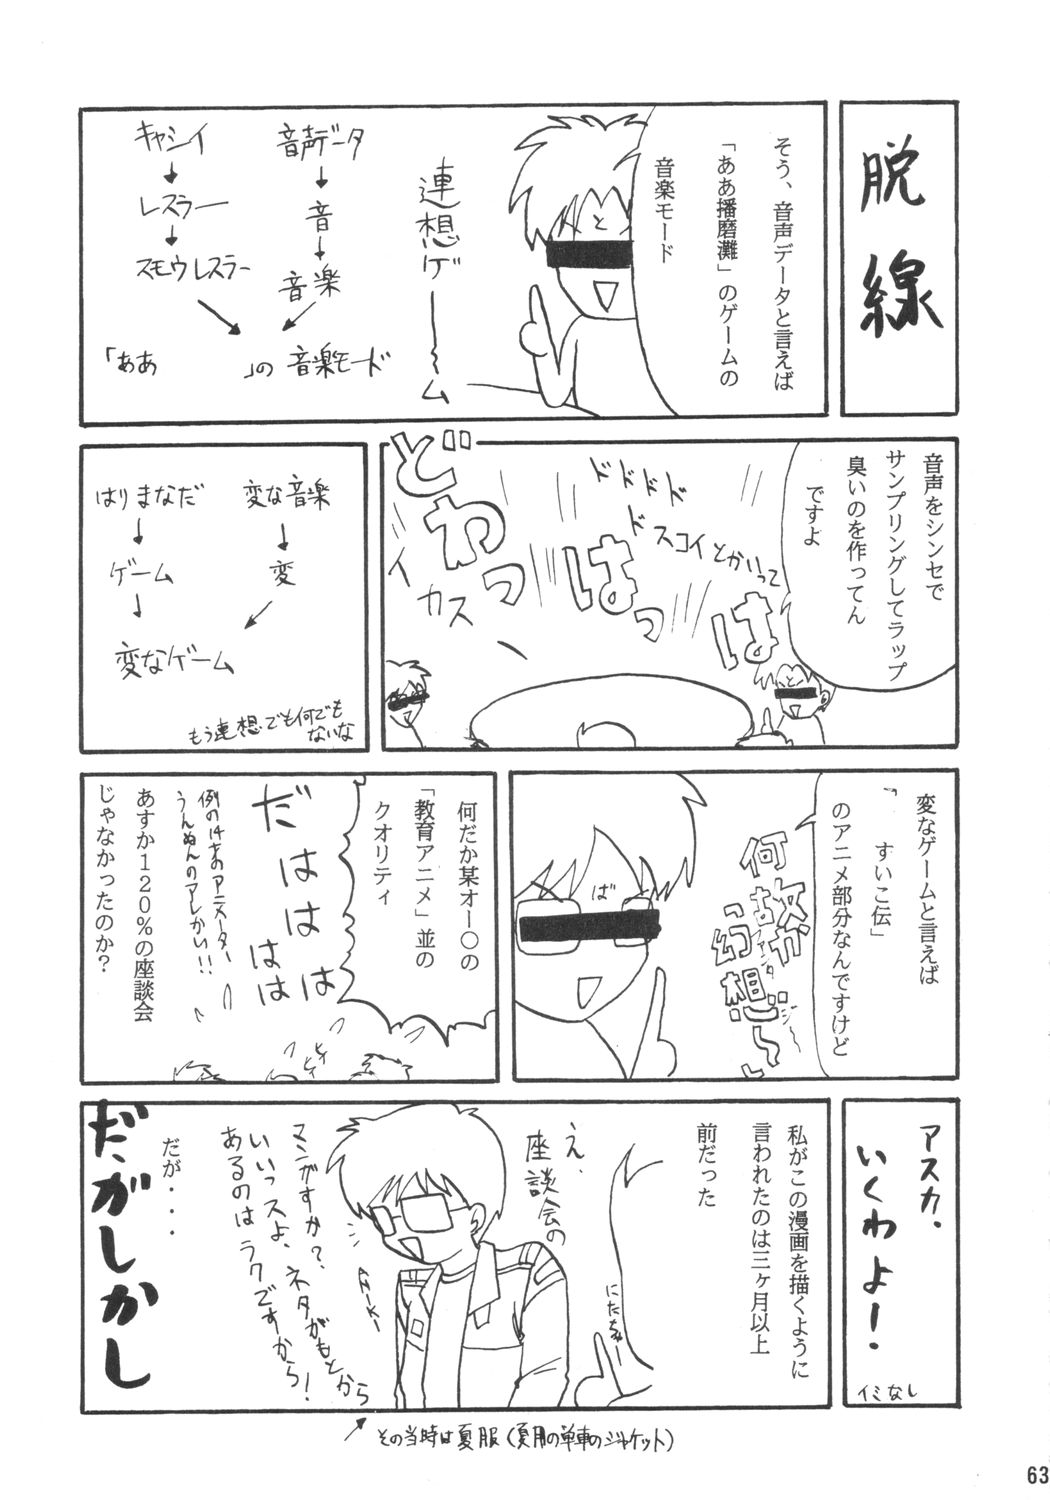 脱線
そう、音声データと言えば
「ああ播磨灘」のゲームの
音楽モード
と
連想ゲーム
音声データ
↓
音
↓
音楽
キャシイ
↓
レスラー
↓
スモウレスラー
「ああ　　　」の音楽モード
音声をシンセで
サンプリングしてラップ
臭いのを作ってん
ですよ
と
ドドドド
ドスコイとかいって
はっはっは
どわっ
イカス
変な音楽
↓
変
はりまなだ
↓
ゲーム
↓
変なゲーム
もう連想でも何でも
ないな
変なゲームと言えば
「　すいこ伝」
のアニメ部分なんですけど
何故か
幻想〜
ば
何だか某オー〇の
「教育アニメ」並の
クオリティ
だははは
はは
ヒィ
ヒィ
例の14才のアニメーター
うんぬんのアレかい!!
あすか120%の座談会
じゃなかったのか?
アスカ、
いくわよー!
イミなし
私がこの漫画を描くように
言われたのは三ヶ月以上
前だった
にたぁー
え、
座談会の
マンガすか?
いいっスよ、ネタがもとから
あるのはラクですから!
ANIKI
だが・・・
だがしかし
その当時は夏服(夏用の単車のジャケット)
63